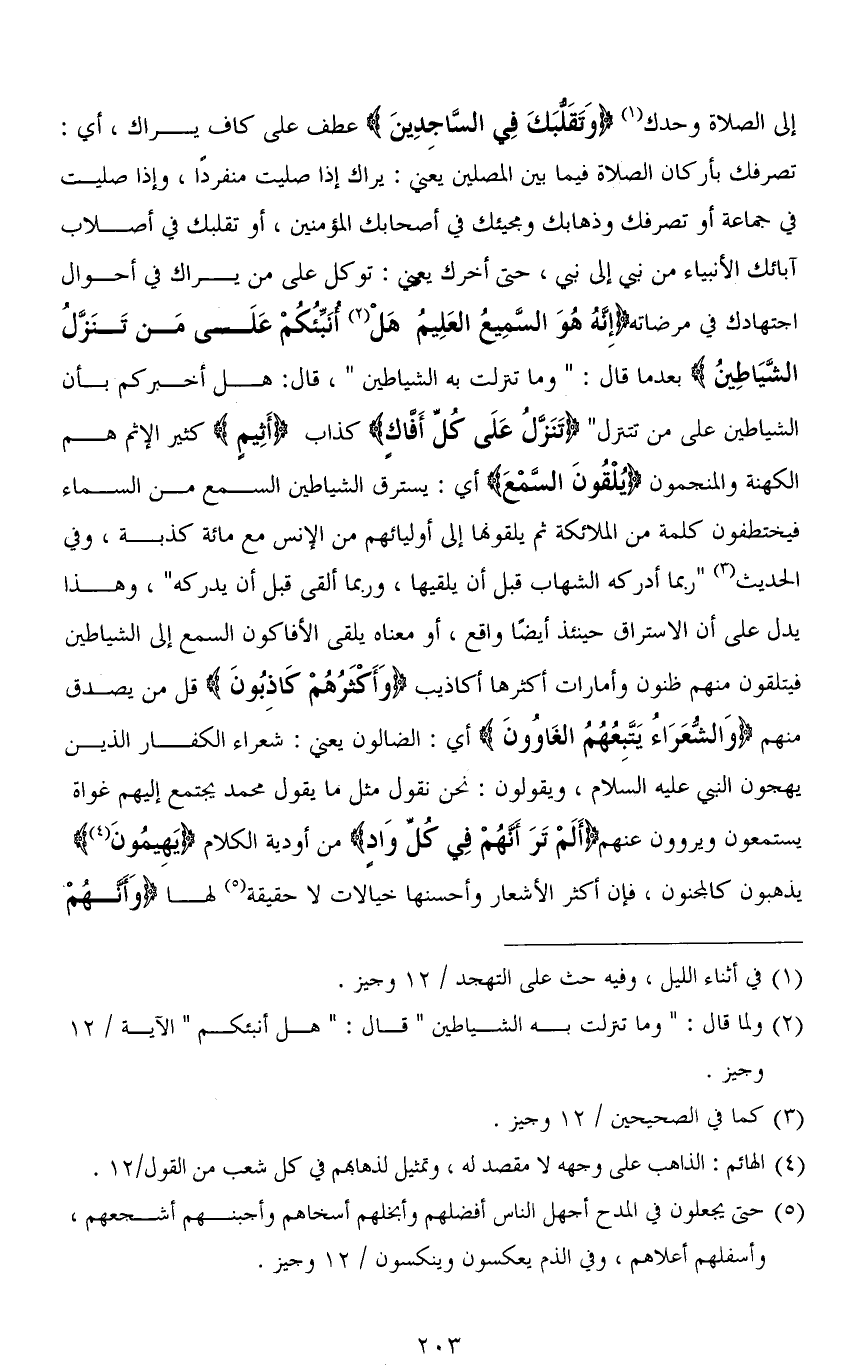 إلى الصلاة وحدك(١) ﴿وَتَقَلُّبَكَ فِي السَّاجِدِينَ﴾ عطف على كاف يـــراك ، أي :
تصرفك بأركان الصلاة فيما بين المصلين يعني : يراك إذا صليت منفردًا ، وإذا صليت
في جماعة أو تصرفك وذهابك ومجيئك في أصحابك المؤمنين ، أو تقلبك في أصلاب
آبائك الأنبياء من نبي إلى نبي ، حتى أخرك يعني : توكل على من يــراك في أحوال
اجتهادك في مرضاته﴿إِنَّهُ هُوَ السَّمِيعُ العَلِيمُ هَلْ(٢) أُنَبِّئُكُمْ عَلَــى مَـن تَـنَزَّلُ
الشَّيَاطِينُ﴾ بعدما قال : " وما تنزلت به الشياطين " ، قال: هـل أخبركم بأن
الشياطين على من تتنزل" ﴿تَنَزَّلُ عَلَى كُلِّ أَفَّاكٍ﴾ كذاب ﴿أَثِيمٍ﴾ كثير الإثم هـم
الكهنة والمنجمون ﴿يُلْقُونَ السَّمْعَ﴾ أي : يسترق الشياطين السـمع مـن السماء
فيختطفون كلمة من الملائكة ثم يلقونها إلى أوليائهم من الإنس مع مائة كذبـة ، وفي
الحديث(٣) "ربما أدركه الشهاب قبل أن يلقيها ، وربما ألقى قبل أن يدركه" ، وهــذا
يدل على أن الاستراق حينئذ أيضًا واقع ، أو معناه يلقى الأفاكون السمع إلى الشياطين
فيتلقون منهم ظنون وأمارات أكثرها أكاذيب ﴿وَأَكْثَرُهُمْ كَاذِبُونَ﴾ قل من يصدق
منهم ﴿وَالشُّعَرَاءُ يَتَّبِعُهُمُ الغَاوُونَ﴾ أي : الضالون يعني : شعراء الكفـار الذيـن
يهجون النبي عليه السلام ، ويقولون : نحن نقول مثل ما يقول محمد يجتمع إليهم غواة
يستمعون ويروون عنهم﴿أَلَمْ تَرَ أَنَّهُمْ فِي كُلِّ وَادٍ﴾ من أودية الكلام ﴿يَهِيمُونَ(٤)﴾
يذهبون كالمجنون ، فإن أكثر الأشعار وأحسنها خيالات لا حقيقة(٥) لهـا ﴿وَأَنَّــهُمْ
(١) في أثناء الليل ، وفيه حث على التهجد / ١٢ وجيز .
(٢) ولما قال : " وما تنزلت بـه الشـياطين " قـال : " هـل أنبئكـم " الآيـة / ١٢
وجيز .
(٣) كما في الصحيحين / ١٢ وجيز .
(٤) الهائم : الذاهب على وجهه لا مقصد له ، وتمثيل لذهابهم في كل شعب من القول/١٢ .
(٥) حتى يجعلون في المدح أجهل الناس أفضلهم وأبخلهم أسخاهم وأجبنـهم أشـجعهم ،
وأسفلهم أعلاهم ، وفي الذم يعكسون وينكسون / ١٢ وجيز .
٢٠٣